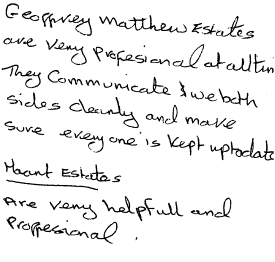 Geoffrey Matthew Estates
are very profesional at all tim
They Communicate & we both
sides cleanly and make
sure everyone is kept uptodate
Haart Estates
Are very helpfull and
Proffesional.